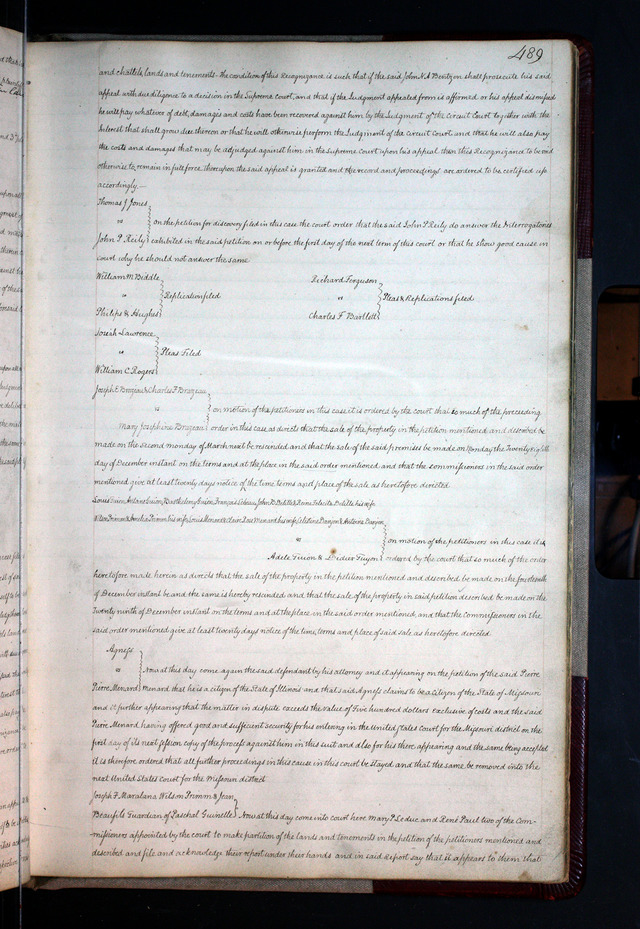 489
and chattels, lands and tenements. The condition of this Recognizance is such that if the said John N. A Bentzon shall prosecute his said
appeal with due diligence to a decision in the Supreme Court, and that if the Judgment appealed from is affirmed or his appeal dismissed
he will pay whatever of debt, damages and costs have been recovered against him by the Judgment of the Circuit Court together with the
Interest that shall grow due thereon or that he will otherwise perform the Judgment of the Circuit Court and that he will also pay
the costs and damages that may be adjudged against him in the supreme Court upon his appeal then this Recognizance to be void
otherwise to remain in full force, thereupon the said appeal is granted and the record and proceedings are ordered to be certified up
accordingly.—
Thomas J Jones
vs
on the petition for discovery filed in this case the court order that the said John P. Reily do answer the Interrogatories
John P Reily exhibited in the said petition on or before the first day of the next term of this court or that he show good cause in
court why he should not answer the same
William M Biddle
vs Replication filed
Philips & Hughes
Richard Ferguson
vs Pleas & Replications filed
Charles F Bartlett
Josiah Lawrence
vs Pleas Filed
William C Rogers
Joseph E Brazeau & Charles F Brazeau
vs on motion of the petitioners in this case it is ordered by the court that so much of the preceeding
Mary Josephine Brazeau order in this case as directs that the sale of the property in the petition mentioned and described be
made on the second monday of March next be rescended and that the sale of the said premises be made on Monday the Twenty eighth
day of December instant on the terms and at the place in the said order mentioned and that the commissioners in the said order
mentioned give at least twenty days notice of the time terms and place of the sale as heretofore directed
Louis Guion Guion Barthelemy Guion Français John B Belille & Reine Felicite Belille his wife
Wilson Primm & Amelia Primm his wife Louis Menard & Menard his wife Celestine & Antoine
vs on motion of the petitioners in this case it is
Adele Guion & Didier Guyon ordered by the court that so much of the order
heretofore made herein as directs that the sale of the property in the petition mentioned and described be made on the fourteenth
of December instant be and the same is hereby rescunded and that the sale of the property in said petition described be made on the
Twenty ninth of December instant on the terms and at the place in the said order mentioned, and that the Commissioners in the
said order mentioned give at least twenty days notice of the time, terms and place of said sale as heretofore directed.
Agness
vs Now at this day come again the said defendant by his attorney and it appearing on the petition of the said Pierre
Pierre Menard Menard that he is a citizen of the State of Illinois and that said Agness claims to be a Citizen of the State of Missouri
and it further appearing that the matter in dispute exceeds the value of Five hundred dollars exclusive of costs and the said
Pierre Menard having offered good and sufficient security for his entering in the United States Court for the Missouri district on the
first day of its next session copy of the process against him in this suit and also for his there appearing and the same being accepted
it is therefore ordered that all further proceedings in this cause in this court be stayed and that the same be removed into the
next United States Court for the Missouri district
Joseph F Maralana Wilson Primm & Jean
Beaufils Guardian of Paschal Guinelle Now at this day come into court here Mary P. Leduc and René Paul two of the Com-
missioners appointed by the court to make partition of the lands and tenements in the petition of the petitioners mentioned and
described and file and acknowledge their report under their hands and in said Report say that it appears to them that